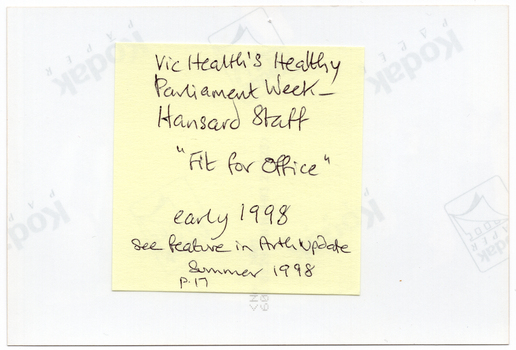 Vic Health's Healthy
Parliament Week -
Hansard Staff
"Fit for Office"
early 1998
See feature in Arth Update
Summer 1998
p.17
Kodak
Kodak
Kodak
Kodak